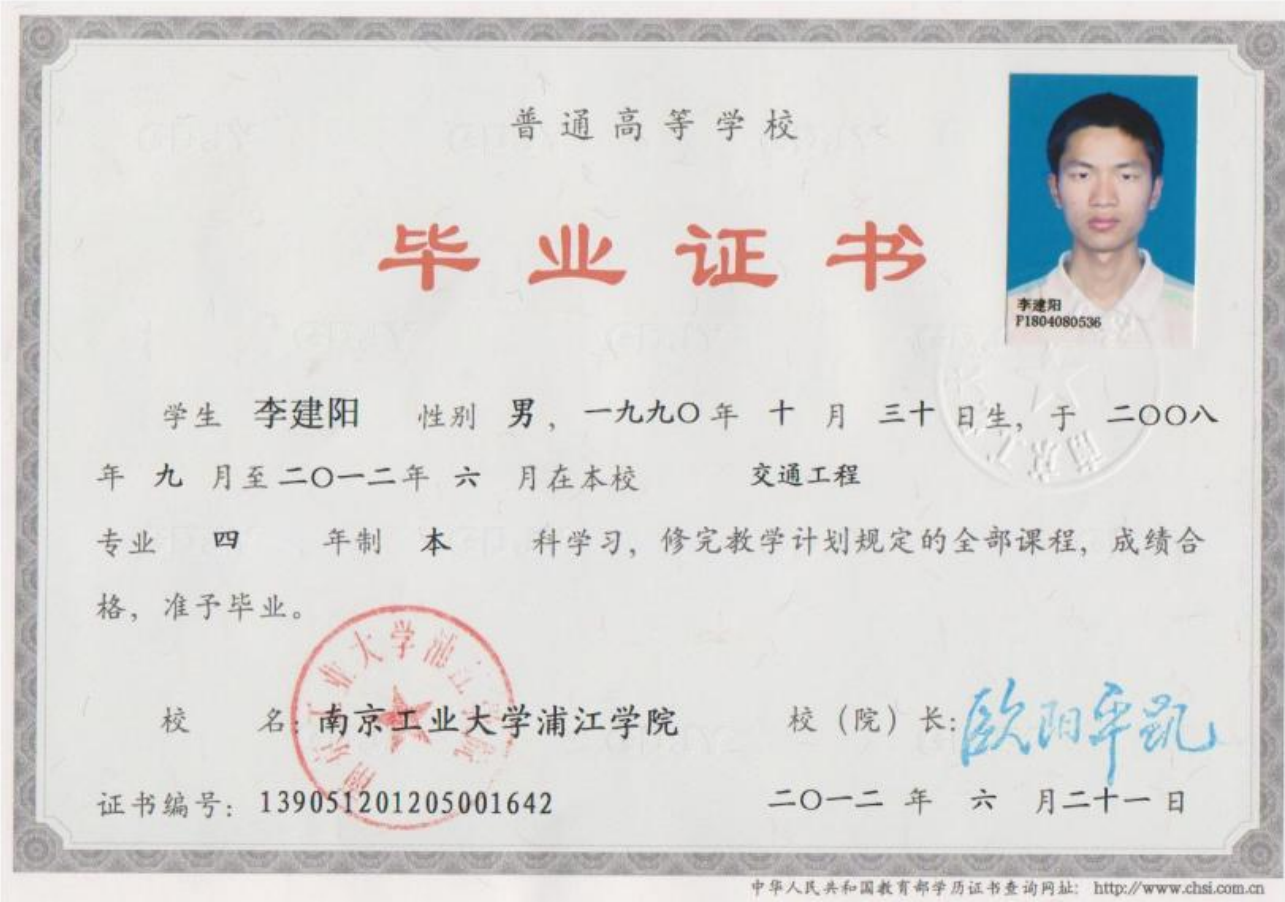 普通高等学校
毕业证书
李建阳
F1804080536
学生 李建阳 性别 男，一九九〇年 十 月 三十 日生，于 二〇〇八
年 九 月至二〇一二年 六 月在本校 交通工程
专业 四 年制 本 科学习，修完教学计划规定的全部课程，成绩合
格，准予毕业。
南京工业大学浦江学院
校 名：南京工业大学浦江学院 校（院）长：欧阳平凯
证书编号：139051201205001642 二〇一二 年 六 月二十一日
中华人民共和国教育部学历证书查询网址：http://www.chsi.com.cn